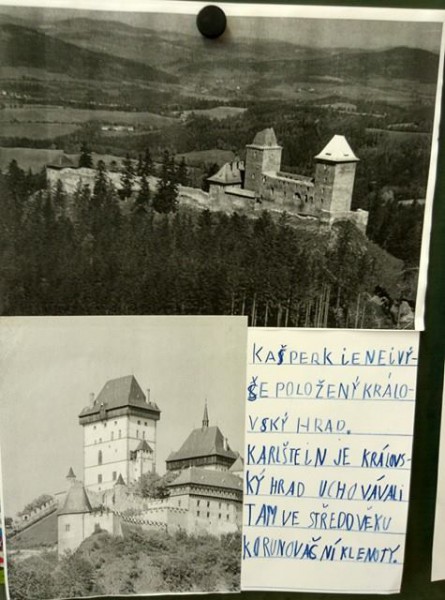 KAŠPERK JE NEJVÝ-
ŠE POLOŽENÝ KRÁLO-
VSKÝ HRAD.
KARLŠTEJN JE KRÁLOVS-
KÝ HRAD UCHOVÁVALI
TAM VE STŘEDOVĚKU
KORUNOVAČNÍ KLENOTY.